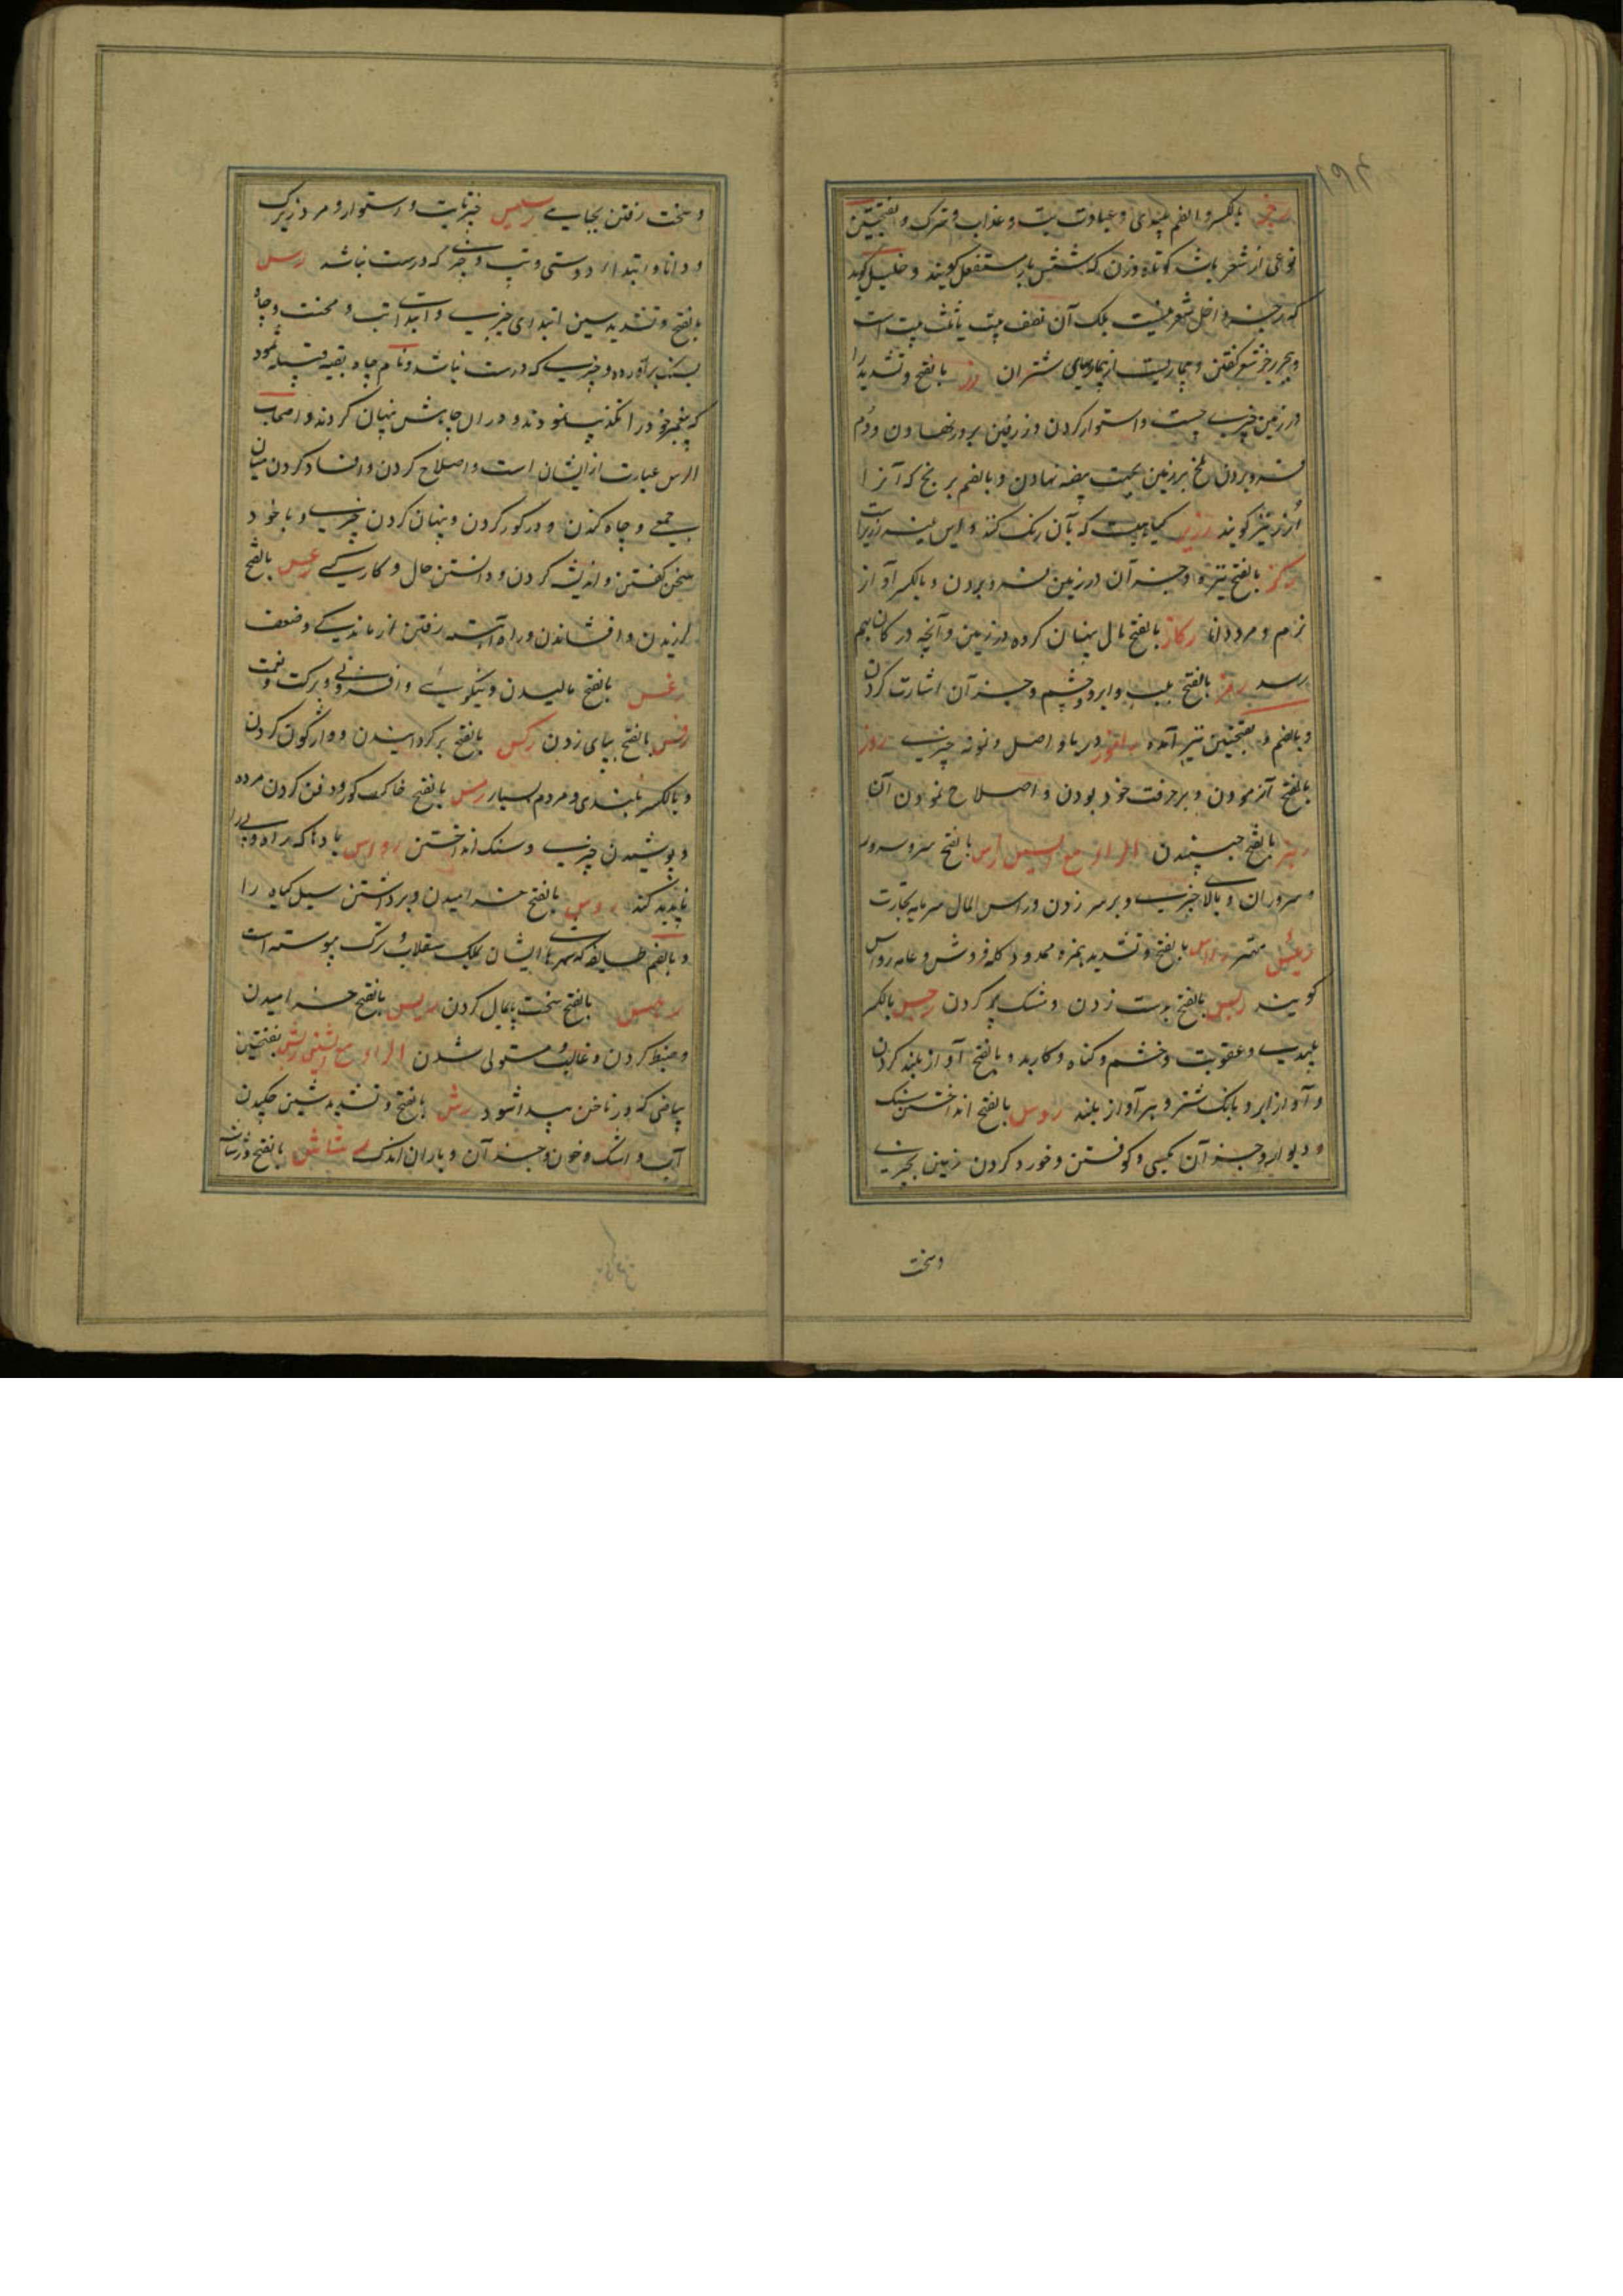 ۱۹۴
رجز بالکسر والضم پلیدی و عبادت بت و عذاب و شرک و بفتحتین
نوعی از شعر باشد کوتاه وزن که شش بار مستفعلن گویند و خلیل گوید
که رجز داخل شعر نیست بلکه آن نصف بیت یا ثلث بیت است
و بحر رجز شعر گفتن و بیماریست از بیماریهای شتران رز بالفتح و تشدید را
در زمین چیزی چست و استوار کردن و زرفین بر در نهادن و دم
فرو بردن ملخ بر زمین بجهت بیضه نهادن و بالضم برنج که آنرا
ارز نیز گویند رزیز گیاهیست که بآن رنگ کنند و این
رکز بالفتح نیزه و جز آن در زمین فرو بردن و بالکسر آواز
نرم و مرد دانا رکاز بالفتح مال پنهان کرده در زمین و آنچه در کان بهم
رسد رمز بالفتح بلب و ابرو و چشم و جز آن اشارت کردن
و بالضم و بفتحتین نیز آمده دریا و اصل و نمونه چیزی روز
بالفتح آزمودن و بر حرفت خود بودن و اصلاح نمودن آن
بالفتح جنبیدن الراء مع السین راس بالفتح سر و سرور
و سروران و بالای چیزی و بر سر زدن و راس المال سرمایه تجارت
رئیس مهتر رواس بالفتح و تشدید همزه ممدود کله فروش و عامه رواس
گویند ربس بالفتح بدست زدن و مشک پر کردن رجس بالکسر
پلیدی و عقوبت و خشم و گناه و کار بد و بالفتح آواز بلند کردن
و آواز ابر و بانگ شتر و هر آواز بلند ردس بالفتح انداختن سنگ
و دیوار و جز آن و کوفتن و خورد کردن زمین بچیزی
وسخت
وسخت رفتن بجایی رسیس چیز ثابت و استوار و مرد زیرک
و دانا و ابتداء دوستی و تب و خبری که درست نباشد رس
بالفتح و تشدید سین ابتدای چیزی و ابتداء تب و محنت و چاه
بسنگ برآورده و چیزی که درست نباشد و نام چاه بقیه قبیله ثمود
که پیغمبر خود را تکذیب نمودند و در آن چاهش پنهان کردند و اصحاب
الرس عبارت از ایشان است و اصلاح کردن و افساد کردن میان
جمعی و چاه کندن و در گور کردن و پنهان کردن چیزی و با خود
سخن گفتن و اندیشه کردن و دانستن حال و کار کسی رعس بالفتح
لرزیدن و افشاندن و راه آهسته رفتن از ماندگی و ضعف
رغس بالفتح مالیدن و نیکویی و افزونی و برکت و نعمت
رفس بالفتح بپای زدن رکس بالفتح برگردانیدن و واژگون کردن
و بالکسر پلیدی و مردم بسیار رمس بالفتح خاک گور و دفن کردن مرده
و پوشیدن چیزی و سنگ انداختن روامس بادها که راه و پی را
ناپدید کند روس بالفتح خرامیدن و برداشتن سیل گیاه را
و بالضم طایفه که شهرهای ایشان بملک سقلاب و ترک پیوسته است
رهس بالفتح سخت پایمال کردن ریس بالفتح خرامیدن
و ضبط کردن و غالب و مستولی شدن الراء مع الشین ربش بفتحتین
بیاضی که در ناخن پیدا شود رش بالفتح و تشدید شین چکیدن
آب و اشک و خون و جز آن و باران اندک رشاش بالفتح